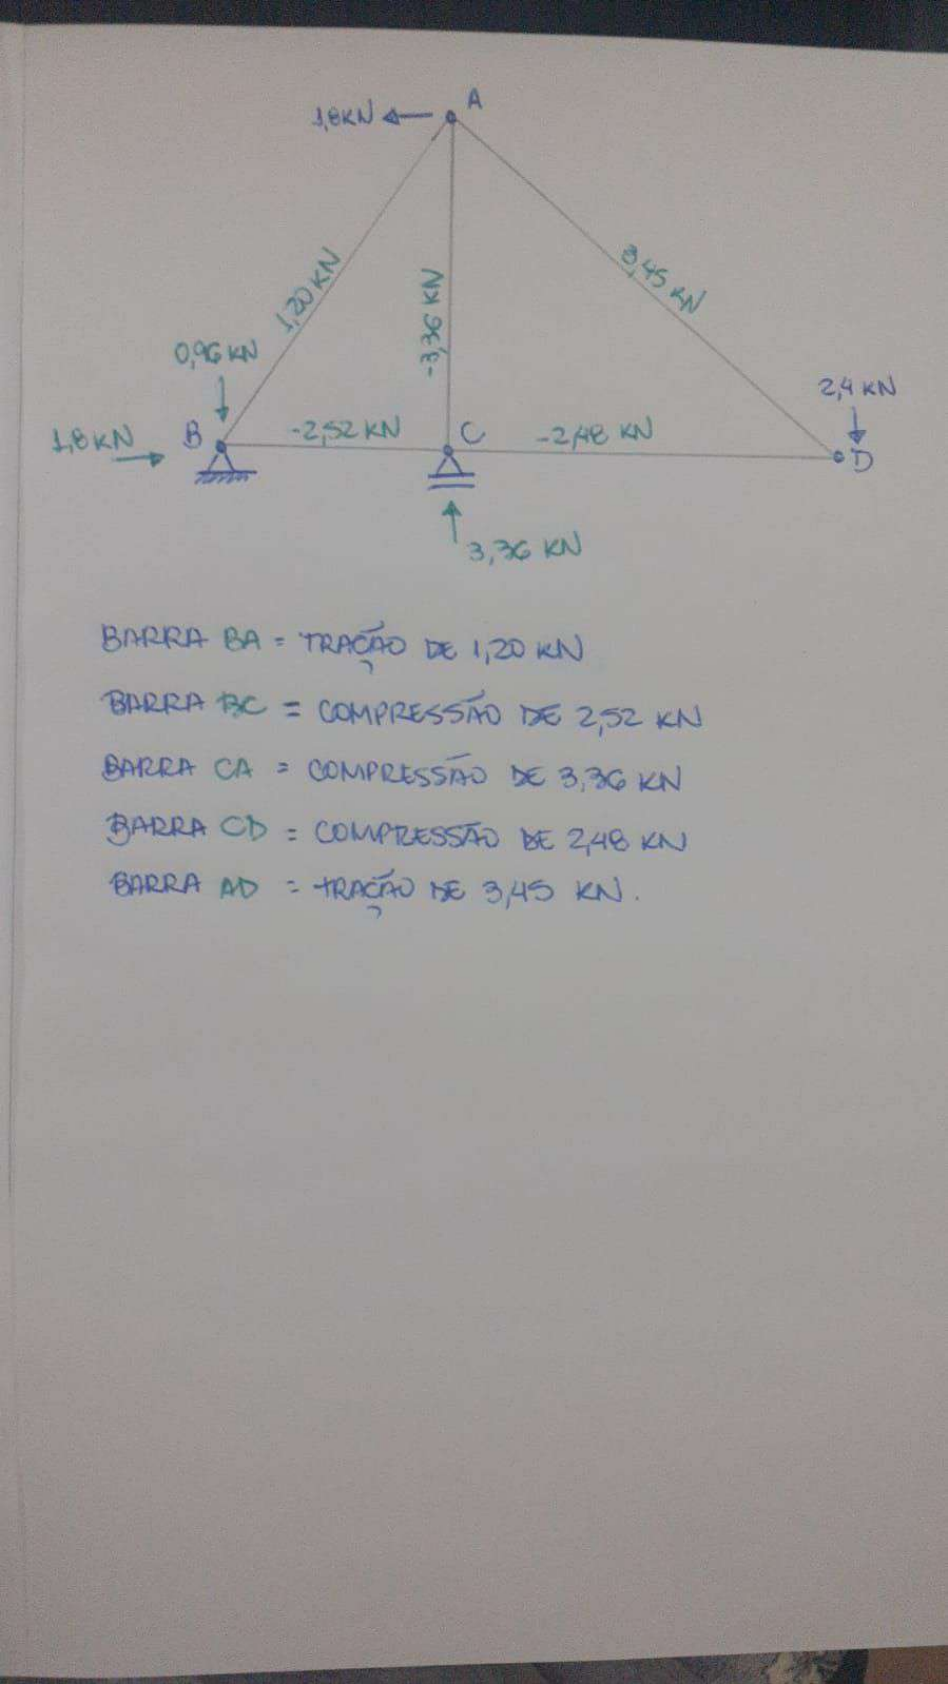 A
1,8KN
1,20 KN
-3,36 KN
3,45 KN
0,96 KN
2,4 KN
1,8 KN
B
-2,52 KN
C
-2,48 KN
D
3,36 KN
BARRA BA = TRAÇÃO DE 1,20 KN
BARRA BC = COMPRESSÃO DE 2,52 KN
BARRA CA = COMPRESSÃO DE 3,36 KN
BARRA CD = COMPRESSÃO DE 2,48 KN
BARRA AD = TRAÇÃO DE 3,45 KN.